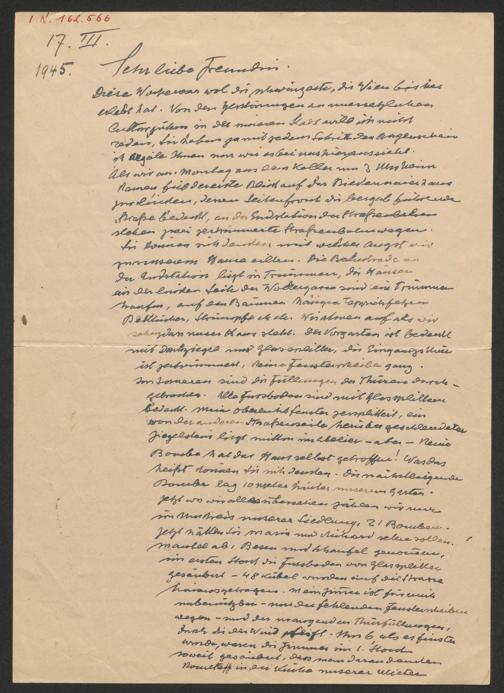 I.N. 162.566
17. III.
1945.
Sehr liebe Freundin.
Diese Woche war wol die schwärzeste, die Wien bis jetzt
erlebt hat. Von den Zerstörungen an unersetzlichen
Kulturgütern in der inneren Stadt will ich nicht
reden, Sie haben ja mit jedem Schritt den Augenschein
ich Ihnen nur wie es bei uns hier aussieht.
Als wir am Montag aus dem Keller um 3 Uhr
kamen fiel der erste Blick auf das Biedermeierhaus
deren Seitenfront die bergab führende
Straße bedeckt, an der Endstation der Straßenbahn
stehen zwei zertrümmerte Straßenbahnwagen.
Sie können sich denken mit welcher Angst wir
zu unserem Hause eilten. Die
der Endstation liegt in Trümmern, die Häuser
an der linken Seite der sind ein Trümmer
haufen, auf den Bäumen hängen Teppichfetzen
Betttücher, Strümpfe etc etc. Wir atmen auf als wir
sehen dass unser Haus steht. Der Vorgarten ist bedeckt
mit Dachziegel und Glassplitter, die Eingangsthür
ist zertrümmert, keine Fensterscheibe ganz.
Im Inneren sind die Füllungen der Thüren durch-
gebrochen. Alle Fussboden sind mit Glassplittern
bedeckt. Mein Oberlichtfenster zersplittert, ein
von der anderen Strassenseite herüber geschleuderter
Ziegelstein liegt mitten im Atelier – aber – keine
Bombe hat das Haus selbst getroffen! Was das
heißt können Sie sich denken. Die nächstliegende
Bombe lag 10 meter hinter unserem Garten.
Jetzt wo wir alles übersehen zählen wir nur
im Umkreis unserer Siedlung, 21 Bomben.
Jetzt hätten Sie Maria und Richard sehen sollen.
Mantel ab, Besen und Schaufel genommen,
im ersten Stock die Fussboden von Glassplitter
gesäubert – 48 Kübel wurden auf die Strasse
hinausgetragen. Mein Zimmer ist für mich
unbenützbar – und der fehlenden Fensterscheiben
wegen – und der mangelnden Thürfüllungen,
durch die der Wind pfeift. Um 6 als es finster
wurde, waren die Zimmer im 1. Stock
soweit gesäubert, dass man daran denken
konnte in der Küche unserer Mieter